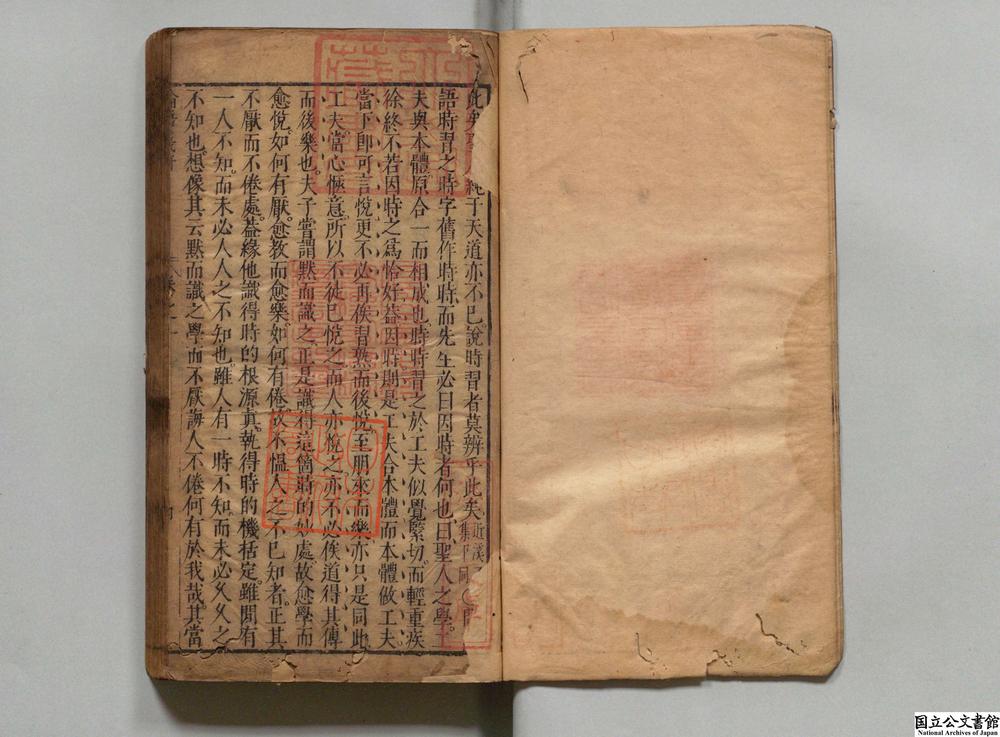 此矣
純于天道亦不已說時習者莫辨乎此矣近溪集下同
語時習之時字舊作時時而先生必曰因時者何也曰聖人之學工
夫與本體原合一而相成也時時習之於工夫似覺緊切而輕重疾
徐終不若因時之為恰好蓋因時則是工夫合本體而本體做工夫
當下即可言悅更不必再俟習熟而後悅至朋來而樂亦只是同此
工夫當心愜意所以不徒已悅之而人亦悅之亦不必俟道得其傳
而後樂也夫子嘗謂默而識之正是識得這箇時的妙處故愈學而
愈悅如何有厭愈教而愈樂如何有倦故不慍人之不已知者正其
不厭而不倦處蓋緣他識得時的根源真執得時的機括定雖間有
一人不知而未必人人之不知也雖人有一時不知而未必久久之
不知也想像其云默而識之學而不厭誨人不倦何有於我哉其當
国立公文書館
National Archives of Japan